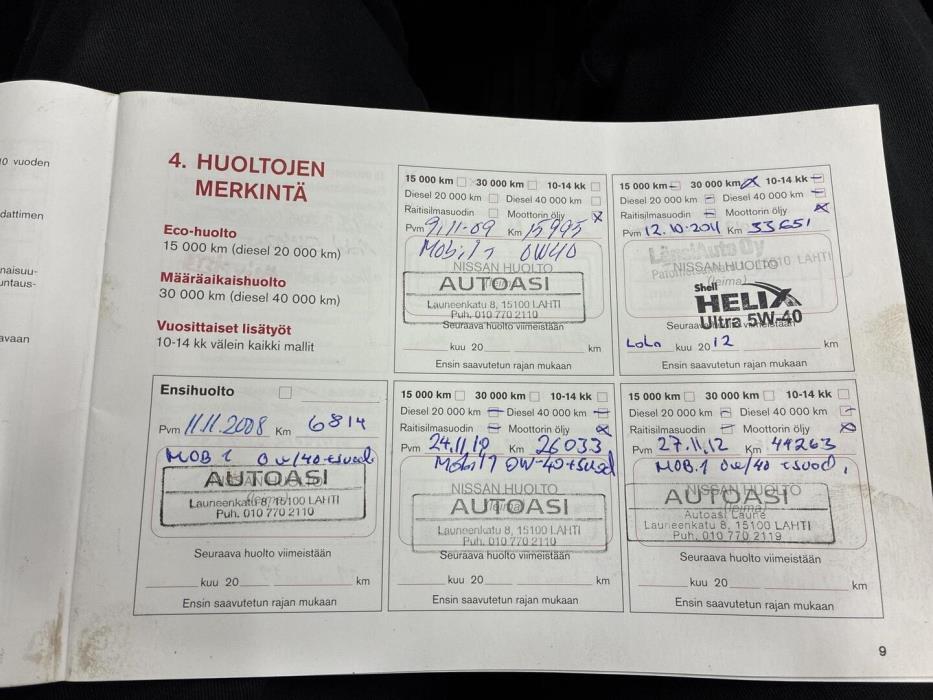 10 vuoden
dattimen
naisuu-
untaus-
avaan
4. HUOLTOJEN
MERKINTÄ
Eco-huolto
15 000 km (diesel 20 000 km)
Määräaikaishuolto
30 000 km (diesel 40 000 km)
Vuosittaiset lisätyöt
10-14 kk välein kaikki mallit
15 000 km 30 000 km 10-14 kk
Diesel 20 000 km Diesel 40 000 km
Raitisilmasuodin Moottorin öljy
Pvm 9.11.09 Km 15995
Mobil 1 0W40
NISSAN HUOLTO
(leima)
AUTOASI
Launeenkatu 8, 15100 LAHTI
Puh. 010 770 2110
Seuraava huolto viimeistään
kuu 20 km
Ensin saavutetun rajan mukaan
15 000 km 30 000 km 10-14 kk
Diesel 20 000 km Diesel 40 000 km
Raitisilmasuodin Moottorin öljy
Pvm 12.10.2011 Km 33651
LänsiAuto Oy
NISSAN HUOLTO
LAHTI
(leima)
Shell
HELIX
Ultra 5W-40
Seuraava huolto viimeistään
Loka kuu 2012 km
Ensin saavutetun rajan mukaan
Ensihuolto
Pvm 11.11.2008 Km 6814
MOB 1 0w/40+suod
NISSAN HUOLTO
(leima)
AUTOASI
Launeenkatu 8, 15100 LAHTI
Puh. 010 770 2110
Seuraava huolto viimeistään
kuu 20 km
Ensin saavutetun rajan mukaan
15 000 km 30 000 km 10-14 kk
Diesel 20 000 km Diesel 40 000 km
Raitisilmasuodin Moottorin öljy
Pvm 24.11.10 Km 26033
Mobil 1 0W-40+suod
NISSAN HUOLTO
(leima)
AUTOASI
Launeenkatu 8, 15100 LAHTI
Puh. 010 770 2110
Seuraava huolto viimeistään
kuu 20 km
Ensin saavutetun rajan mukaan
15 000 km 30 000 km 10-14 kk
Diesel 20 000 km Diesel 40 000 km
Raitisilmasuodin Moottorin öljy
Pvm 27.11.12 Km 44263
MOB.1 0w/40 +suod.
NISSAN HUOLTO
(leima)
AUTOASI
Autoasi Laune
Launeenkatu 8, 15100 LAHTI
Puh. 010 770 2119
Seuraava huolto viimeistään
kuu 20 km
Ensin saavutetun rajan mukaan
9